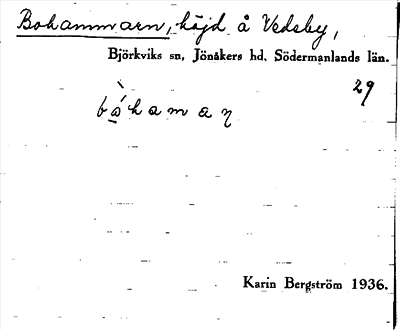 Bohammaren, höjd å Vedsby,
Björkviks sn, Jönåkers hd, Södermanlands län.
29
Karin Bergström 1936.